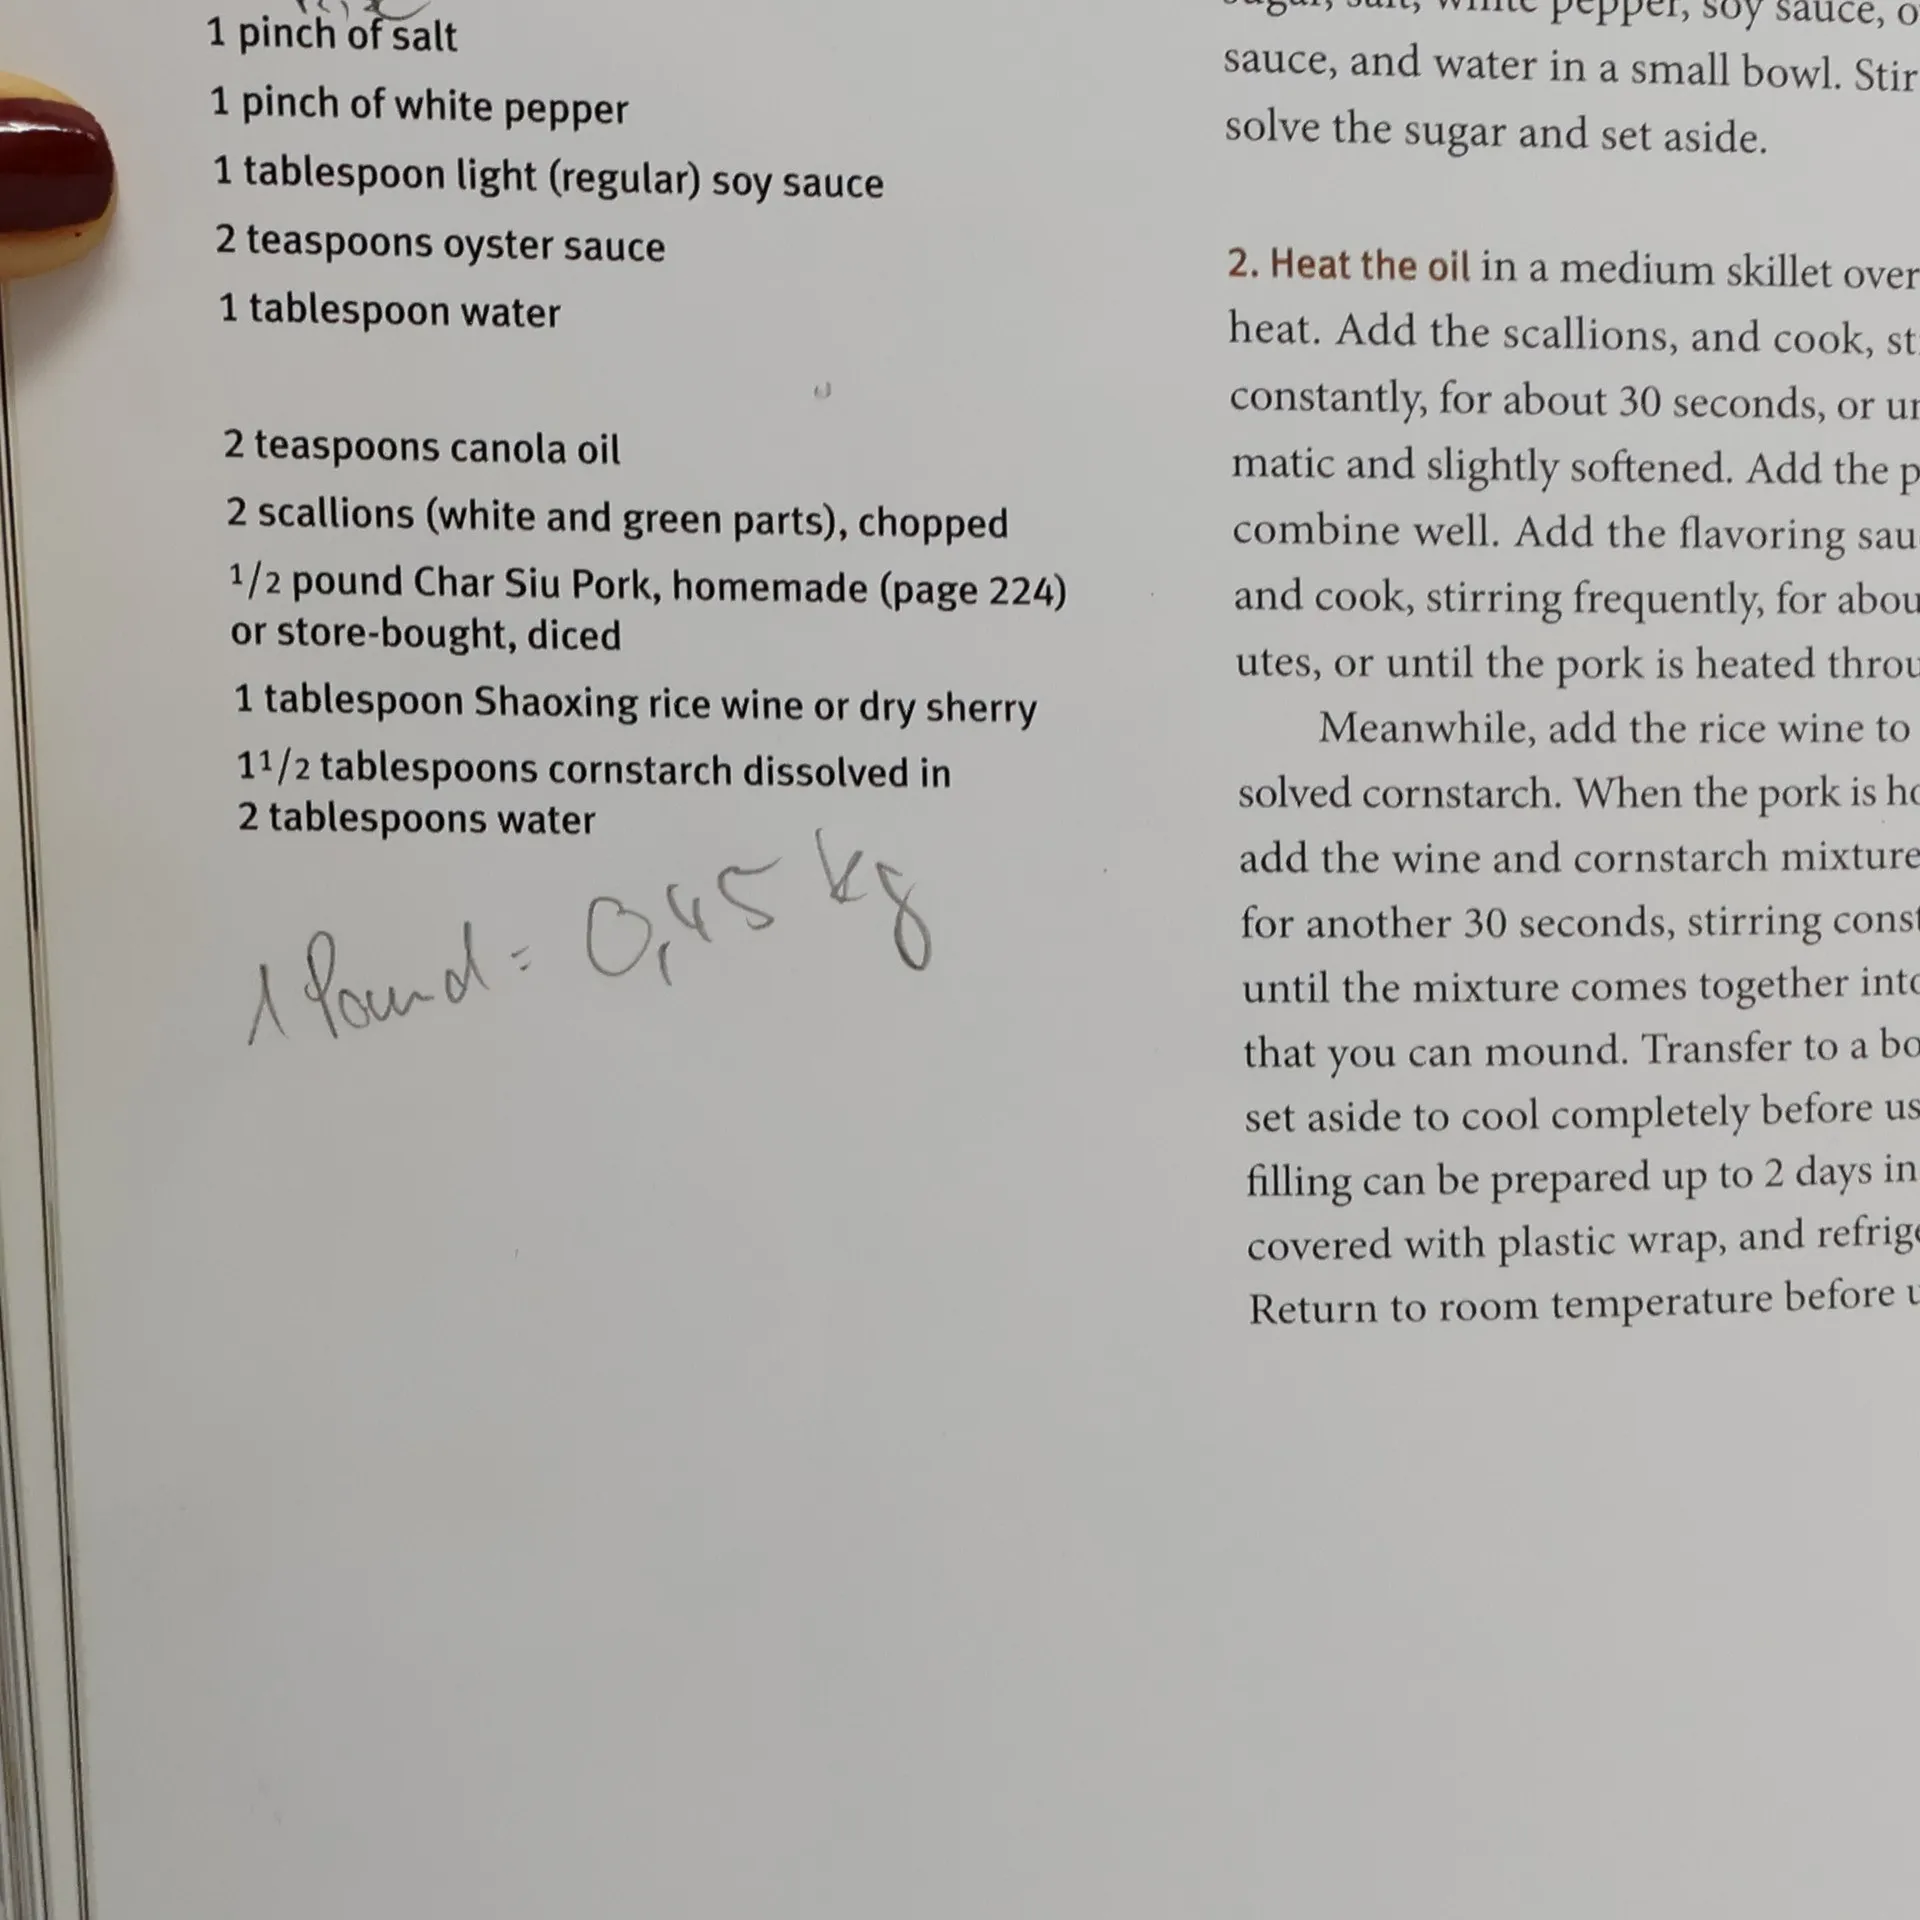 1 pinch of salt
1 pinch of white pepper
1 tablespoon light (regular) soy sauce
2 teaspoons oyster sauce
1 tablespoon water
2 teaspoons canola oil
2 scallions (white and green parts), chopped
1/2 pound Char Siu Pork, homemade (page 224)
or store-bought, diced
1 tablespoon Shaoxing rice wine or dry sherry
1 1/2 tablespoons cornstarch dissolved in
2 tablespoons water
1 Pound = 0,45 kg
sugar, salt, white pepper, soy sauce,
sauce, and water in a small bowl. Stir
solve the sugar and set aside.
2. Heat the oil in a medium skillet over
heat. Add the scallions, and cook,
constantly, for about 30 seconds, or
matic and slightly softened. Add the
combine well. Add the flavoring
and cook, stirring frequently, for
utes, or until the pork is heated
Meanwhile, add the rice wine to
solved cornstarch. When the pork is
add the wine and cornstarch mixture
for another 30 seconds, stirring
until the mixture comes together
that you can mound. Transfer to a
set aside to cool completely before
filling can be prepared up to 2 days in
covered with plastic wrap, and
Return to room temperature before